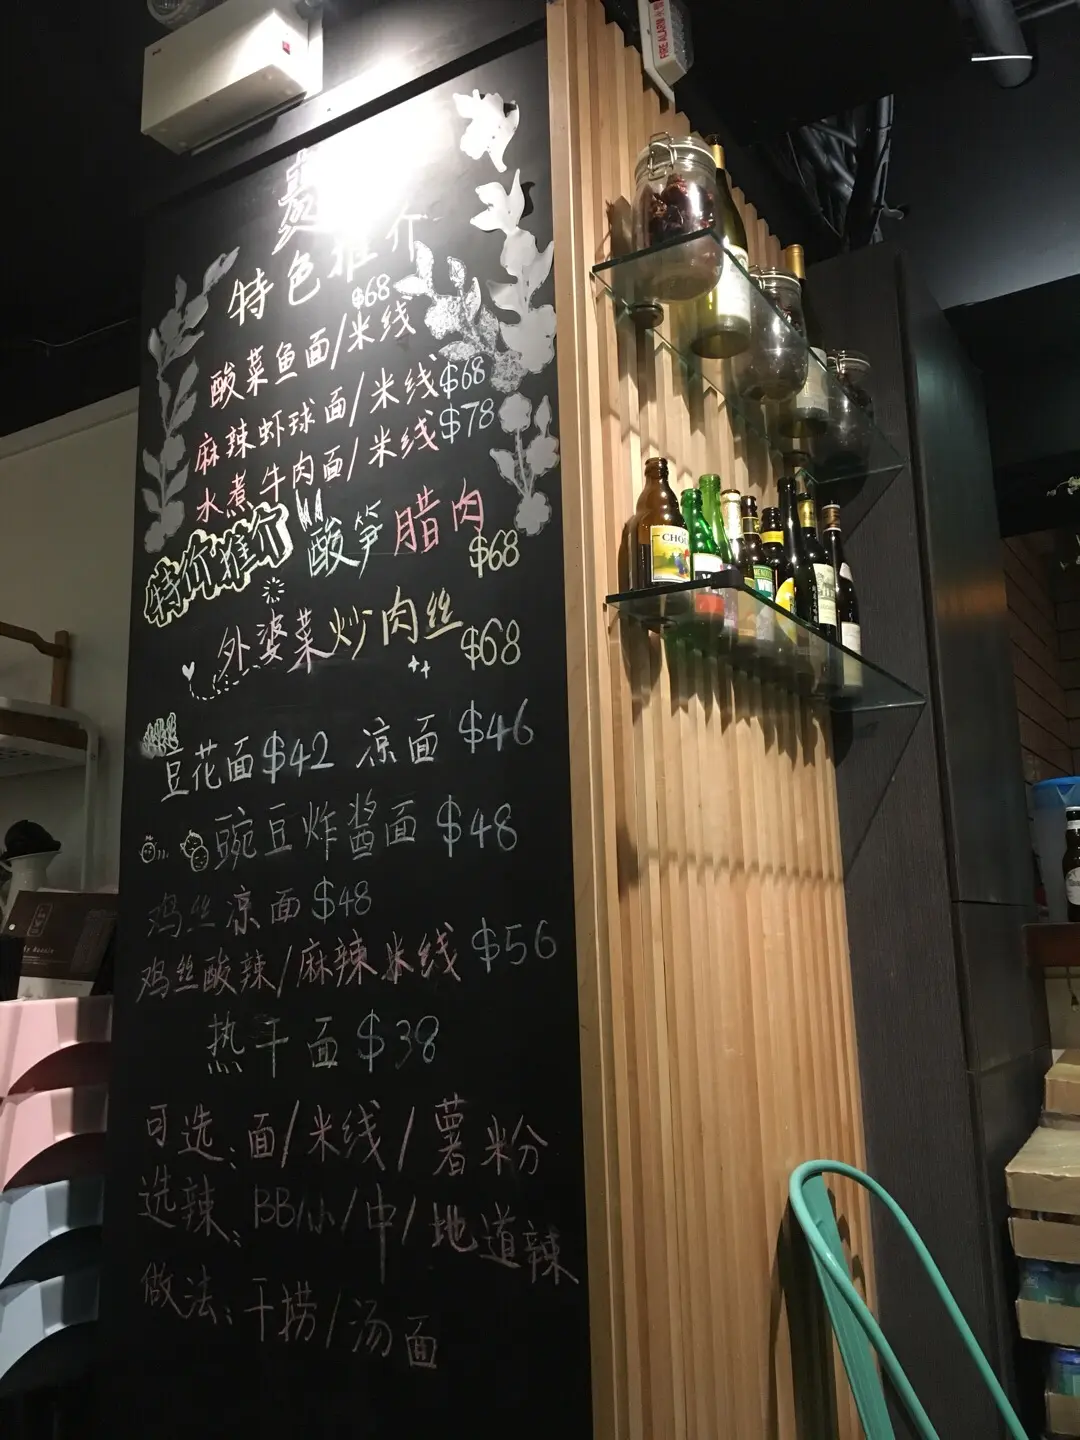 特色推介
$68
酸菜鱼面/米线
麻辣虾球面/米线$68
水煮牛肉面/米线$78
特价推介 酸笋腊肉
$68
外婆菜炒肉丝
$68
豆花面$42 凉面 $46
豌豆炸酱面 $48
鸡丝凉面 $48
鸡丝酸辣/麻辣米线 $56
热干面 $38
可选:面/米线/薯粉
选辣:BB/小/中/地道辣
做法:干捞/汤面
FIRE ALARM
CHO